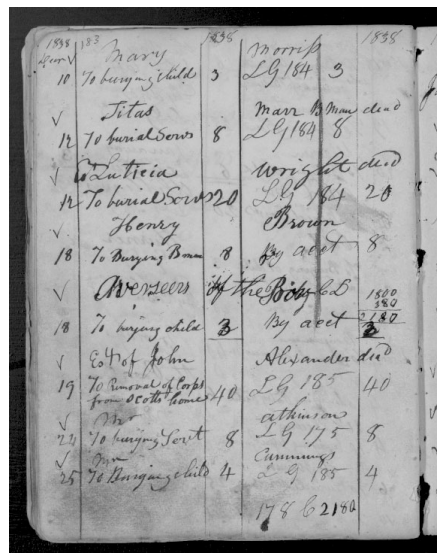 1838 183 1838 1838
Mary Morris
10 To burying child 3 LG 184 3
Titas Marr B Man dead
12 To burial Servs 8 LG 184 8
Luticia Wright dead
12 To burial Servs 20 LG 184 20
Henry Brown
18 To Burying 8 By acct 8
Overseers of the
1800
380
2180
18 To burying child 3 By acct 3
Est of John Alexander died
19 To Removal of Corps
from Scotts home 40 LG 185 40
Mr atkinson
22 To burying Servt 8 LG 175 8
Mr Cummings
25 To Burying child 4 LG 185 4
178 6 2180